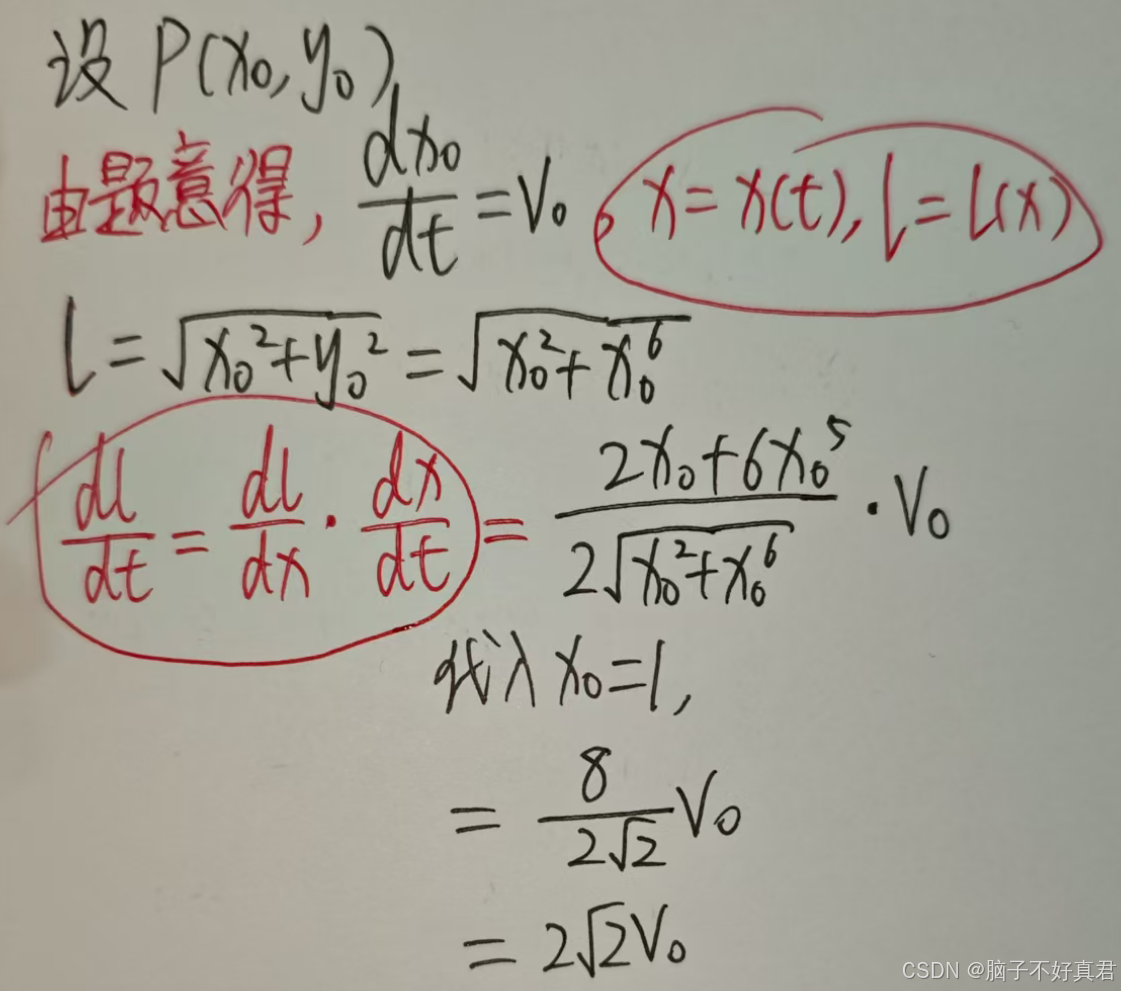 设 P(x₀,y₀)
由题意得, dx₀/dt = V₀, x = x(t), l = l(x)
l = √(x₀²+y₀²) = √(x₀²+x₀⁶)
dl/dt = dl/dx · dx/dt = (2x₀+6x₀⁵)/(2√(x₀²+x₀⁶)) · V₀
代入 x₀=1,
= 8/(2√2) V₀
= 2√2 V₀
CSDN @脑子不好真君